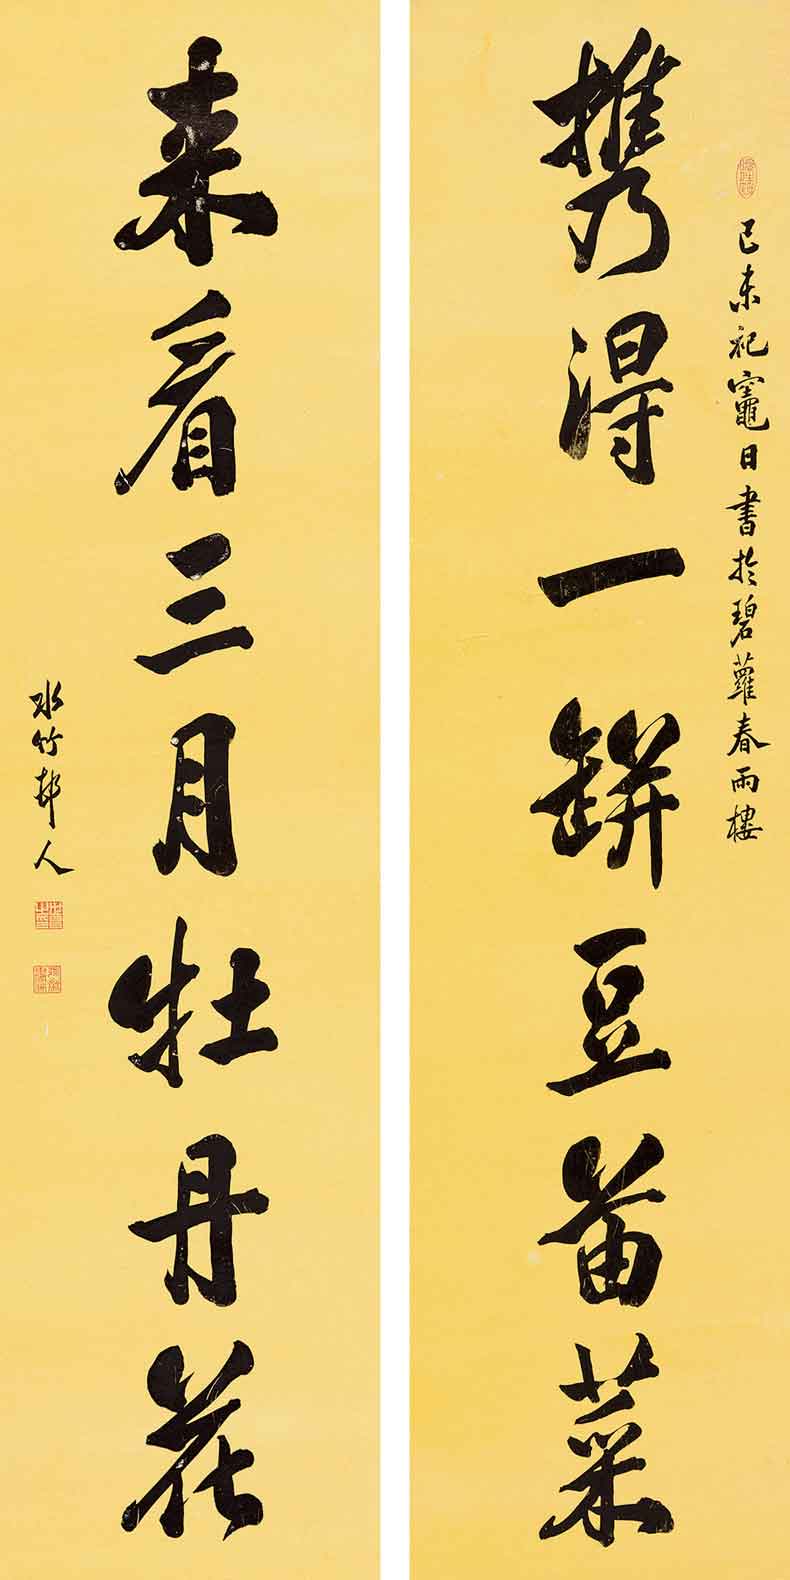 己未祀竈日書於碧蘿春雨樓
携得一缾豆苗菜
来看三月牡丹花
水竹邨人